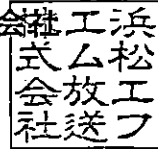 浜松エフ
エム放送
株式会社